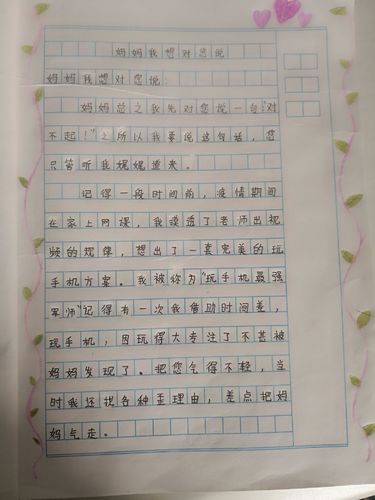 妈妈我想对您说
妈妈我想对您说：
妈妈总之我先对您说一句“对
不起！”之所以我要说这句话，您
只管听我娓娓道来。
记得一段时间前，疫情期间
在家上网课，我摸透了老师出视
频的规律，想出了一套完美的玩
手机方案。我被称为“玩手机最强
军师”记得有一次我借助时间差，
玩手机，因玩得太专注了不甚被
妈妈发现了。把您气得不轻，当
时我还找各种歪理由，差点把妈
妈气走。